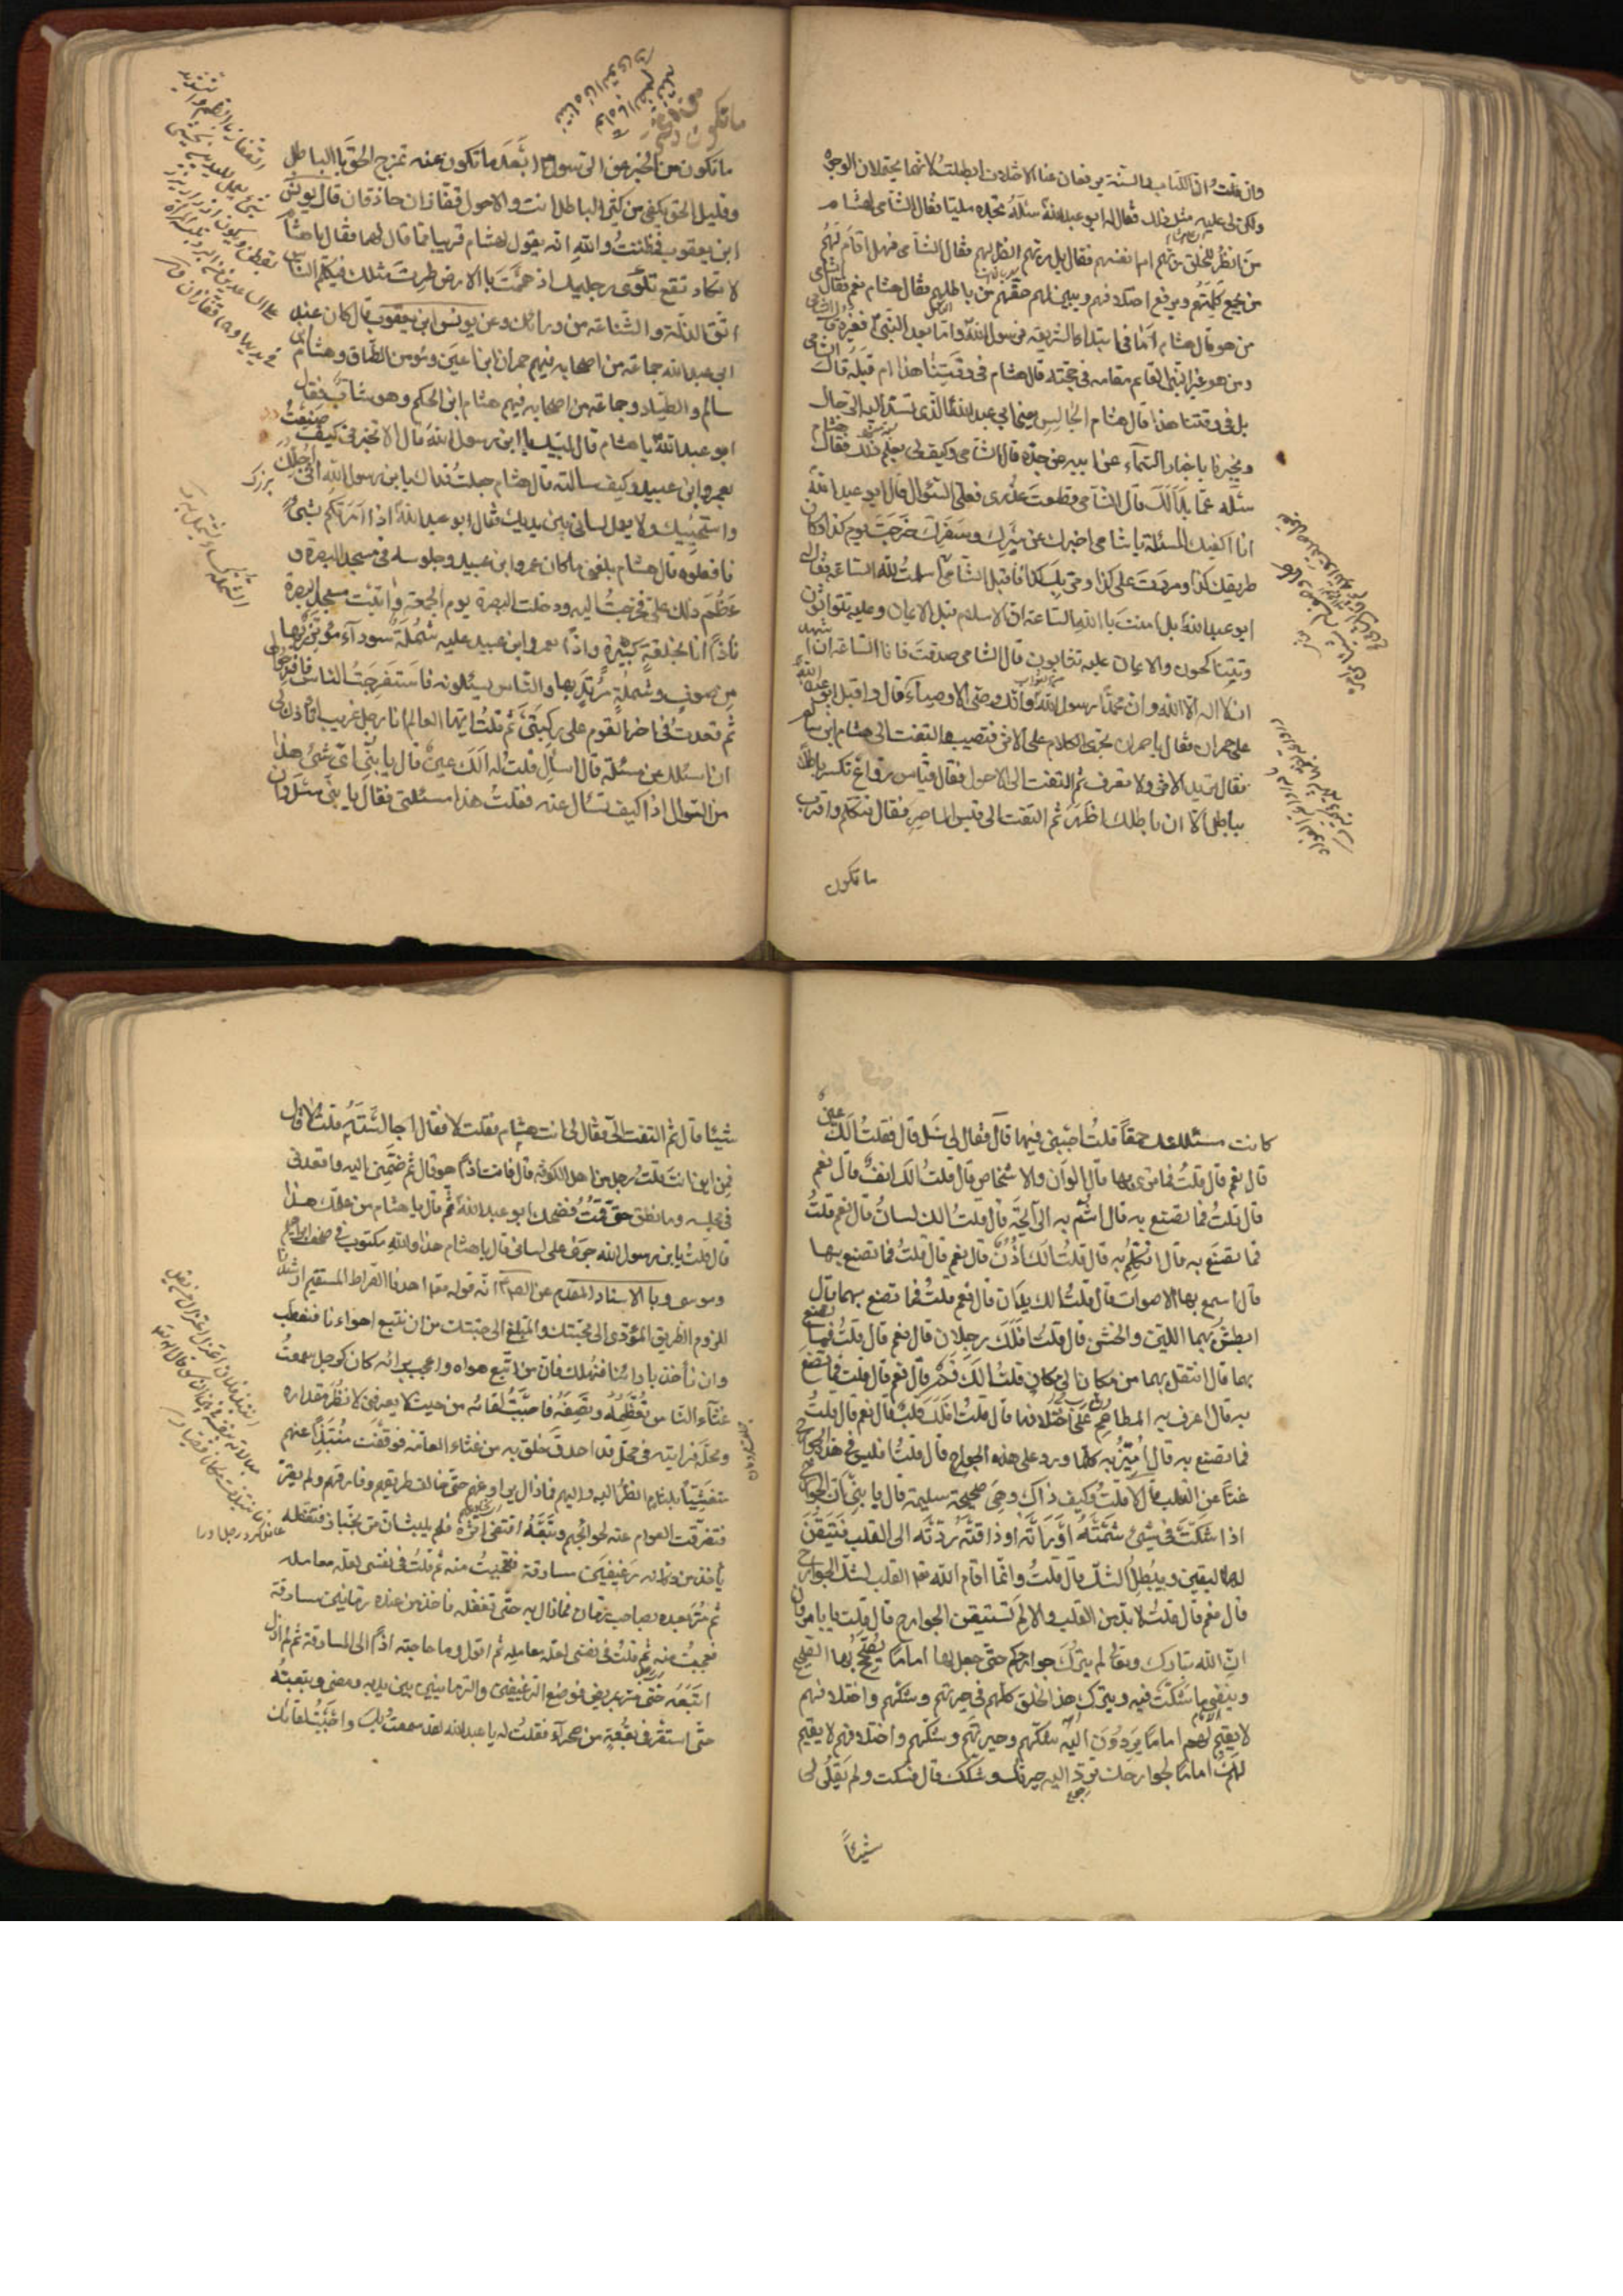 وان قلت ان الكتاب والسنة يرفعان عنا الاختلاف ابطلت لانهما يحتملان الوجوه
ولكن لي عليه مثل ذلك فقال له ابو عبد الله سئله تجده مليا فقال الشامي لهشام
من انظر للخلق ربهم ام انفسهم فقال بل ربهم انظر لهم فقال الشامي فهل اقام لهم
من يجمع كلمتهم ويرفع اختلافهم ويبين لهم حقهم من باطلهم فقال هشام نعم فقال الشامي
من هو قال هشام اما في ابتداء الشريعة فرسول الله واما بعد النبي فغيره قال الشامي
ومن هو غير النبي القائم مقامه في حجته قال هشام في وقتنا هذا ام قبله قال الشامي
بل في وقتنا هذا قال هشام الجالس يعني ابي عبد الله الذي تشد اليه الرحال
ويخبرنا باخبار السماء عن ابيه عن جده قال الشامي وكيف لي بعلم ذلك فقال هشام
سئله عما بدا لك قال الشامي قطعت عذري فعلي السؤال قال ابو عبد الله
انا اكفيك المسئلة يا شامي اخبرك عن سيرك وسفرك خرجت يوم كذا وكان
طريقك كذا ومررت على كذا ومر بك كذا فاقبل الشامي اسلمت لله الساعة فقال له
ابو عبد الله بل امنت بالله الساعة ان الاسلام قبل الايمان وعليه يتوارثون
ويتناكحون والايمان عليه يثابون قال الشامي صدقت فانا الساعة اشهد ان
لا اله الا الله وان محمدا رسول الله وانك وصي الاوصياء قال واقبل ابو عبد الله
على حمران فقال يا حمران تجري الكلام على الاثر فتصيب والتفت الى هشام ابن سالم
فقال تريد الاثر ولا تعرف ثم التفت الى الاحول فقال قياس رواغ تكسر باطلا
بباطل الا ان باطلك اظهر ثم التفت الى قيس الماصر فقال تتكلم واقرب
ما تكون
ما تكون من الخبر عن الرسول ابعد ما تكون عنه تمزج الحق بالباطل
وقليل الحق يكفي من كثير الباطل انت والاحول قفازان حاذقان قال يونس
ابن يعقوب فظننت والله انه يقول لهشام قريبا مما قال لهما فقال يا هشام
لا تكاد تقع تلوي رجليك اذ هممت بالارض طرت مثلك فليكلم الناس
اتق الزلة والشفاعة من ورائك وعن يونس ابن يعقوب قال كان عند
ابي عبد الله جماعة من اصحابه فيهم حمران ابن اعين ومؤمن الطاق وهشام ابن
سالم والطيار وجماعة من اصحابه فيهم هشام ابن الحكم وهو شاب فقال
ابو عبد الله يا هشام قال لبيك يا ابن رسول الله قال الا تخبرني كيف صنعت
بعمرو ابن عبيد وكيف سالته قال هشام جعلت فداك يا بن رسول الله اني اجلك
واستحييك ولا يعمل لساني بين يديك فقال ابو عبد الله اذا امرتكم بشئ
فافعلوه قال هشام بلغني ما كان عمرو ابن عبيد وجلوسه في مسجد البصرة و
عظم ذلك علي فخرجت اليه ودخلت البصرة يوم الجمعة واتيت مسجد البصرة
فاذا انا بحلقة كبيرة واذا بعمرو ابن عبيد عليه شملة سوداء مؤتزر بها
من صوف وشملة مرتد بها والناس يسئلونه فاستفرجت الناس فافرجوا لي
ثم قعدت في اخر القوم على ركبتي ثم قلت ايها العالم انا رجل غريب افتاذن لي
ان اسئلك عن مسئلة قال اسأل قلت له الك عين قال يا بني اي شئ هذا
من السوال اذا كيف تسال عنه فقلت هذا مسئلتي فقال يا بني سل وان
كانت مسئلتك حمقا قلت اجبني فيها قال فقال لي سل قال فقلت الك عين
قال نعم قال قلت فما ترى بها قال الالوان والاشخاص قال قلت الك انف قال نعم
قال قلت فما تصنع به قال اشم به الرائحة قال قلت الك لسان قال نعم قلت
فما تصنع به قال اتكلم به قال قلت الك اذن قال نعم قال قلت فما تصنع بها
قال اسمع بها الاصوات قال قلت الك يدان قال نعم قلت فما تصنع بهما قال
ابطش بهما اللين والخشن قال قلت افلك رجلان قال نعم قال قلت فما تصنع
بهما قال انتقل بهما من مكان الى مكان قلت الك فم قال نعم قال قلت فما تصنع
به قال اعرف به المطاعم على اختلافها قال قلت افلك قلب قال نعم قال قلت
فما تصنع به قال اميز به كلما ورد على هذه الجوارح قال قلت افليس في هذه الجوارح
غنا عن القلب قال لا قلت وكيف ذاك وهي صحيحة سليمة قال يا بني ان الجوارح
اذا شكت في شئ شمته او راته او ذاقته ردته الى القلب فتيقن
لها اليقين ويبطل الشك قال قلت وانما اقام الله القلب لشك الجوارح
قال نعم قال قلت لا بد من القلب والا لم تستيقن الجوارح قال قلت يا با مروان
ان الله تبارك وتعالى لم يترك جوارحكم حتى جعل لها اماما يصحح لها الصحيح
وينفي ما شكت فيه ويترك هذا الخلق كلهم في حيرتهم وشكهم واختلافهم
لا يقيم لهم اماما يردون اليه شكهم وحيرتهم وشكهم واختلافهم لا يقيم
لهم اماما لجوارحك ترد اليه حيرتك وشكك قال فسكت ولم يقل لي
شيئا
شيئا قال ثم التفت الي فقال لي انت هشام فقلت لا فقال اجالسته قلت لا قال
فمن اين انت قلت رجل من اهل الكوفة قال فانت اذا هو قال ثم ضمني اليه واقعدني
في مجلسه وما نطق حتى قمت فضحك ابو عبد الله ثم قال يا هشام من علمك هذا
قال قلت يا بن رسول الله جرى على لساني قال يا هشام هذا والله مكتوب في صحف ابراهيم
وموسى وبالاسناد المقدم عن الصادق انه قوله اهدنا الصراط المستقيم ارشدنا
للزوم الطريق المؤدي الى محبتك والمبلغ الى جنتك من ان نتبع اهواءنا فنعطب
وان ناخذ بارائنا فنهلك فان من اتبع هواه واعجب برائه كان كرجل سمعت
غثاء الناس تعظمه وتصفه فاحببت لقائه من حيث لا يعرفني لانظر مقداره
ومحله فرايته في محل قد احدق خلق به من غثاء العامة فوقفت منتبذا عنهم
متغشيا بلثام انظر اليه واليهم فما زال يراوغهم حتى خالف طريقهم وفارقهم ولم يقر
فتفرقت العوام عنه لحوائجهم وتبعته اقتفي اثره فلم يلبث ان مر بخباز فتغفله
فاخذ من دكانه رغيفين مسارقة فتعجبت منه ثم قلت في نفسي لعله معامله
ثم مر بعده بصاحب رمان فما زال به حتى تغفله فاخذ من عنده رمانتين مسارقة
فعجبت منه ثم قلت في نفسي لعله معامله ثم اقول وما حاجته اذا الى المسارقة ثم لم ازل
اتبعه حتى مر بمريض فوضع الرغيفين والرمانتين بين يديه ومضى وتبعته
حتى استقر في بقعة من صحراء فقلت له يا عبد الله لقد سمعت بك واحببت لقائك